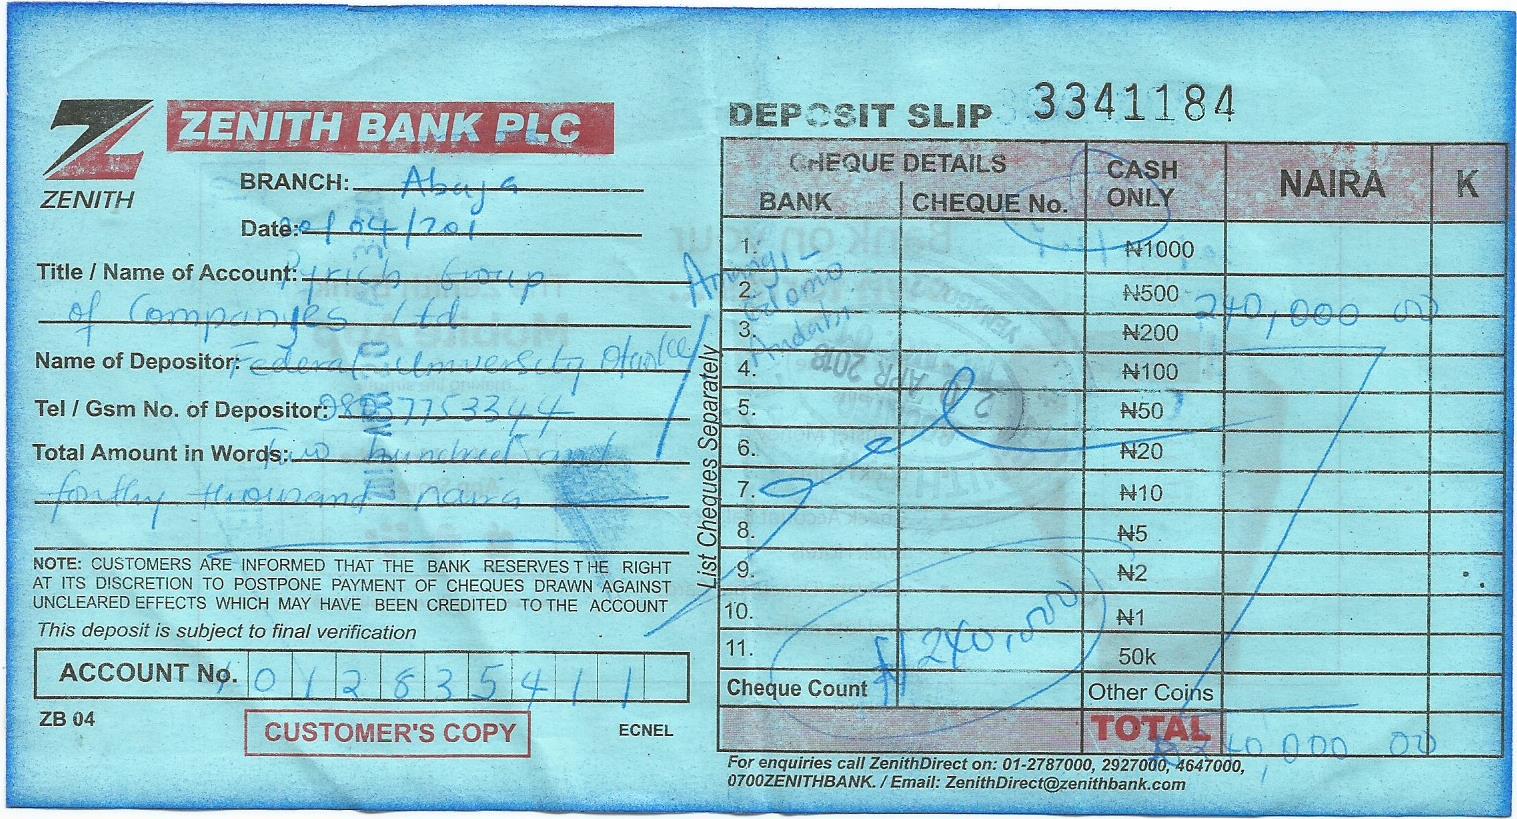 ZENITH BANK PLC
ZENITH
BRANCH: Abaja
Date: /04/201
Title / Name of Account: Group
of Companyies Ltd
Name of Depositor: Federal University Otuoke
Tel / Gsm No. of Depositor: 08037753344
Total Amount in Words: Two hundred and
forthy thousand naira
NOTE: CUSTOMERS ARE INFORMED THAT THE BANK RESERVES THE RIGHT
AT ITS DISCRETION TO POSTPONE PAYMENT OF CHEQUES DRAWN AGAINST
UNCLEARED EFFECTS WHICH MAY HAVE BEEN CREDITED TO THE ACCOUNT
This deposit is subject to final verification
ACCOUNT No. 1012835411
ZB 04
CUSTOMER'S COPY
ECNEL
DEPOSIT SLIP 3341184
CHEQUE DETAILS
BANK CHEQUE No. CASH ONLY NAIRA K
List Cheques Separately
1. ₦1000
2. ₦500 240,000 00
3. ₦200
4. ₦100
5. ₦50
6. ₦20
7. ₦10
8. ₦5
9. ₦2
10. ₦1
11. 50k
₦240,000
Cheque Count Other Coins
TOTAL ₦240,000 00
For enquiries call ZenithDirect on: 01-2787000, 2927000, 4647000,
0700ZENITHBANK. / Email: ZenithDirect@zenithbank.com